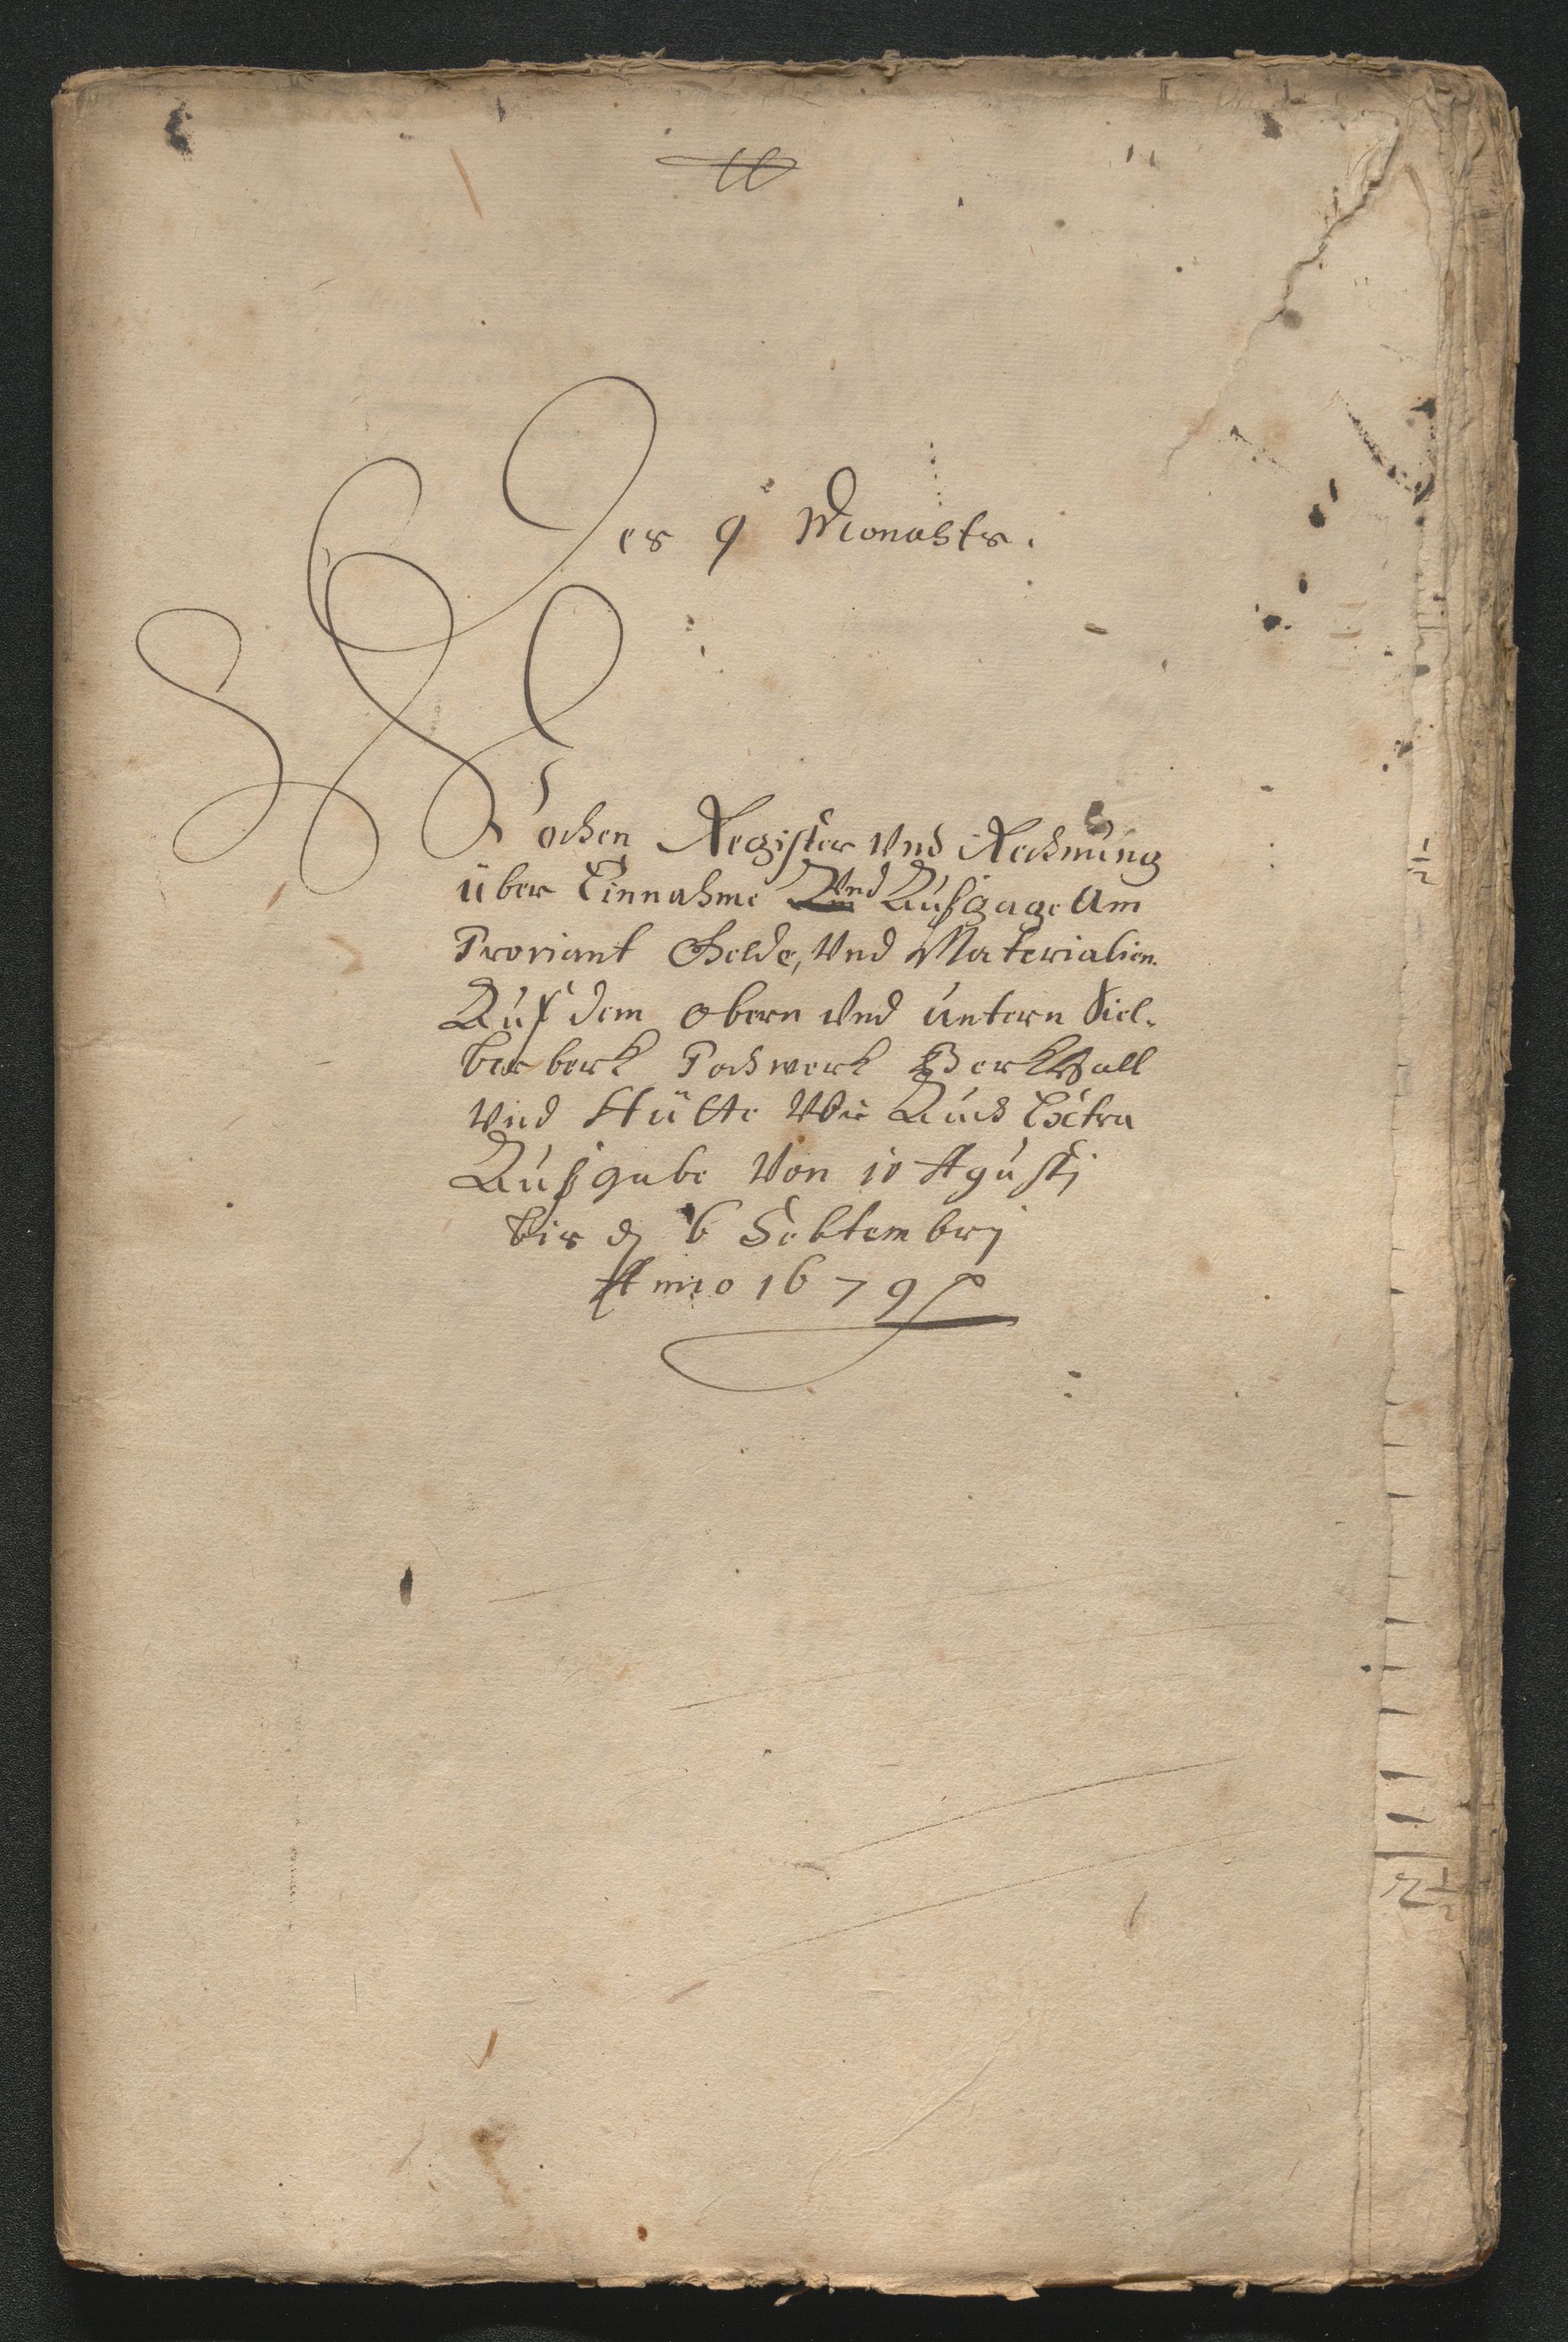 Des 9 Monahts.
Wochen Register Vnd Rechnung
über Einnahme Vnd Außgage Am
Proviant Gelde, Vnd Materialien
Auf dem obern Vnd untern Siel-
ber berk Pochwerk Berkfall
Vnd Hütte Wie Auch Extra
Außgabe Von 10 Agusti
bis d 6 Sebtembrj
Anno 1679
1/2